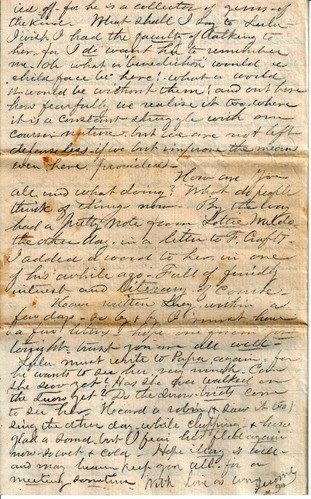 ied off - for he is a collector of gems - of
the kind. What shall I say to Lulu
I wish I had the faculty of talking to
her - for I do want her to remember
me. Oh what a "benediction" would a
child face be here! what a world
it would be without them! and out here
how fearfully we realize it too, where
it is a constant struggle with our
coarser nature - but we are not left
defenseless if we but improve the means
even here provided -
How are you
all and what doing? What do people
think of things now By the way
had a pretty note from Lottie
the other day, in a letter to F.
I added a word to her, in one
of his awhile ago - Full of
interest and literary of course
Have written Lucy within a
few days -
a few letters I hope
tonight - trust you are all well -
Lulu must write to Papa again - for
he wants to see her very much. Can
she sew yet? Has she walked on
the snow yet? Do the snow-birds come
to see her. Heard a robin & saw it too
sing the other day while chopping & how
glad a sound, but I fear he's fled again
now so wet & cold - Hope May is well -
and may heaven keep you all - for a
meeting sometime With love as ever